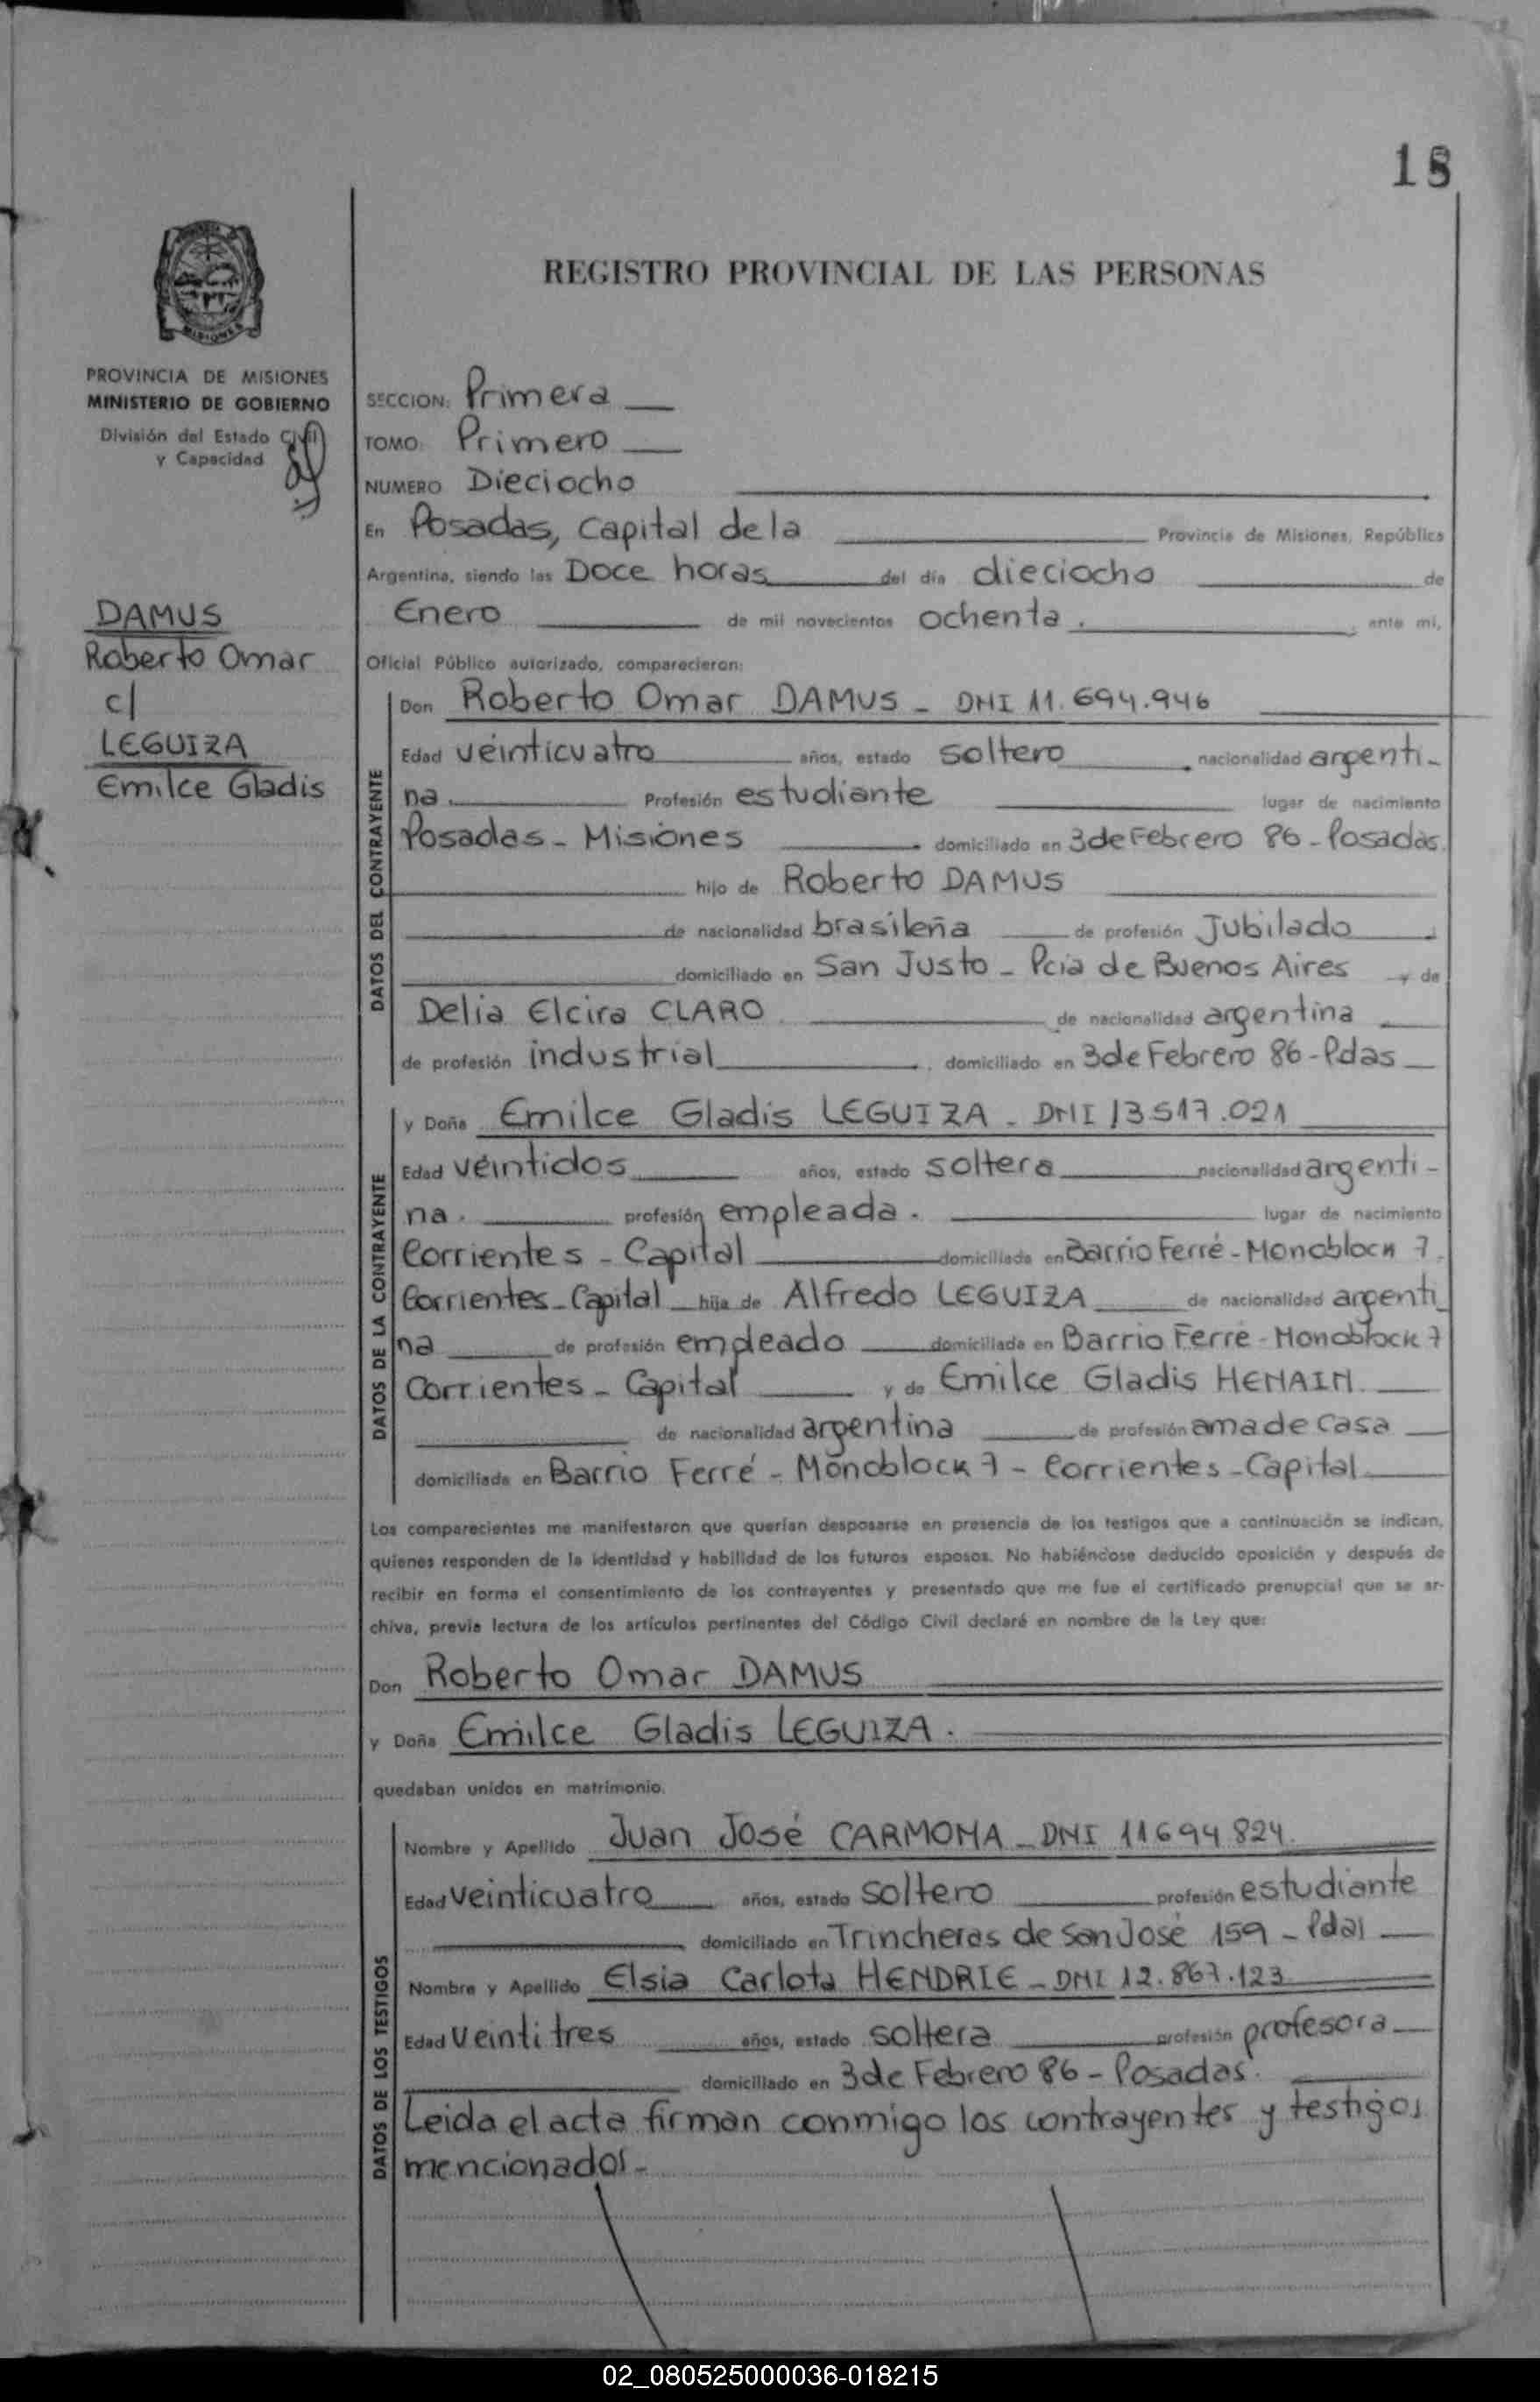 18
REGISTRO PROVINCIAL DE LAS PERSONAS
MISIONES
PROVINCIA DE MISIONES
MINISTERIO DE GOBIERNO
División del Estado Civil
y Capacidad
DAMUS
Roberto Omar
c/
LEGUIZA
Emilce Gladis
SECCION: Primera
TOMO: Primero
NUMERO Dieciocho
En Posadas, Capital de la Provincia de Misiones, República
Argentina, siendo las Doce horas del día dieciocho de
Enero de mil novecientos ochenta. ; ante mi,
Oficial Público autorizado, comparecieron:
DATOS DEL CONTRAYENTE
Don Roberto Omar DAMUS - DNI 11.694.946
Edad veinticuatro años, estado soltero nacionalidad argenti-
na. Profesión estudiante lugar de nacimiento
Posadas - Misiones domiciliado en 3 de Febrero 86 - Posadas.
hijo de Roberto DAMUS
de nacionalidad brasileña de profesión Jubilado
domiciliado en San Justo - Pcia de Buenos Aires y de
Delia Elcira CLARO de nacionalidad argentina
de profesión industrial domiciliado en 3 de Febrero 86 - Pdas
DATOS DE LA CONTRAYENTE
y Doña Emilce Gladis LEGUIZA - DNI 13517.021
Edad veintidos años, estado soltera nacionalidad argenti-
na. profesión empleada. lugar de nacimiento
Corrientes - Capital domiciliada en Barrio Ferré - Monoblock 7.
Corrientes - Capital hija de Alfredo LEGUIZA de nacionalidad argenti
na de profesión empleado domiciliado en Barrio Ferre - Monoblock 7
Corrientes - Capital y de Emilce Gladis HENAIN
de nacionalidad argentina de profesión ama de casa
domiciliada en Barrio Ferré - Monoblock 7 - Corrientes - Capital
Los comparecientes me manifestaron que querían desposarse en presencia de los testigos que a continuación se indican,
quienes responden de la identidad y habilidad de los futuros esposos. No habiéndose deducido oposición y después de
recibir en forma el consentimiento de los contrayentes y presentado que me fue el certificado prenupcial que se ar-
chiva, previa lectura de los artículos pertinentes del Código Civil declaré en nombre de la Ley que:
Don Roberto Omar DAMUS
y Doña Emilce Gladis LEGUIZA.
quedaban unidos en matrimonio.
DATOS DE LOS TESTIGOS
Nombre y Apellido Juan José CARMONA - DNI 11694824.
Edad veinticuatro años, estado soltero profesión estudiante
domiciliado en Trincheras de San José 159 - Pdas
Nombre y Apellido Elsia Carlota HENDRIE - DNI 12.867.123
Edad veintitres años, estado soltera profesión profesora
domiciliado en 3 de Febrero 86 - Posadas.
Leida el acta firman conmigo los contrayentes y testigos
mencionados-
02_080525000036-018215